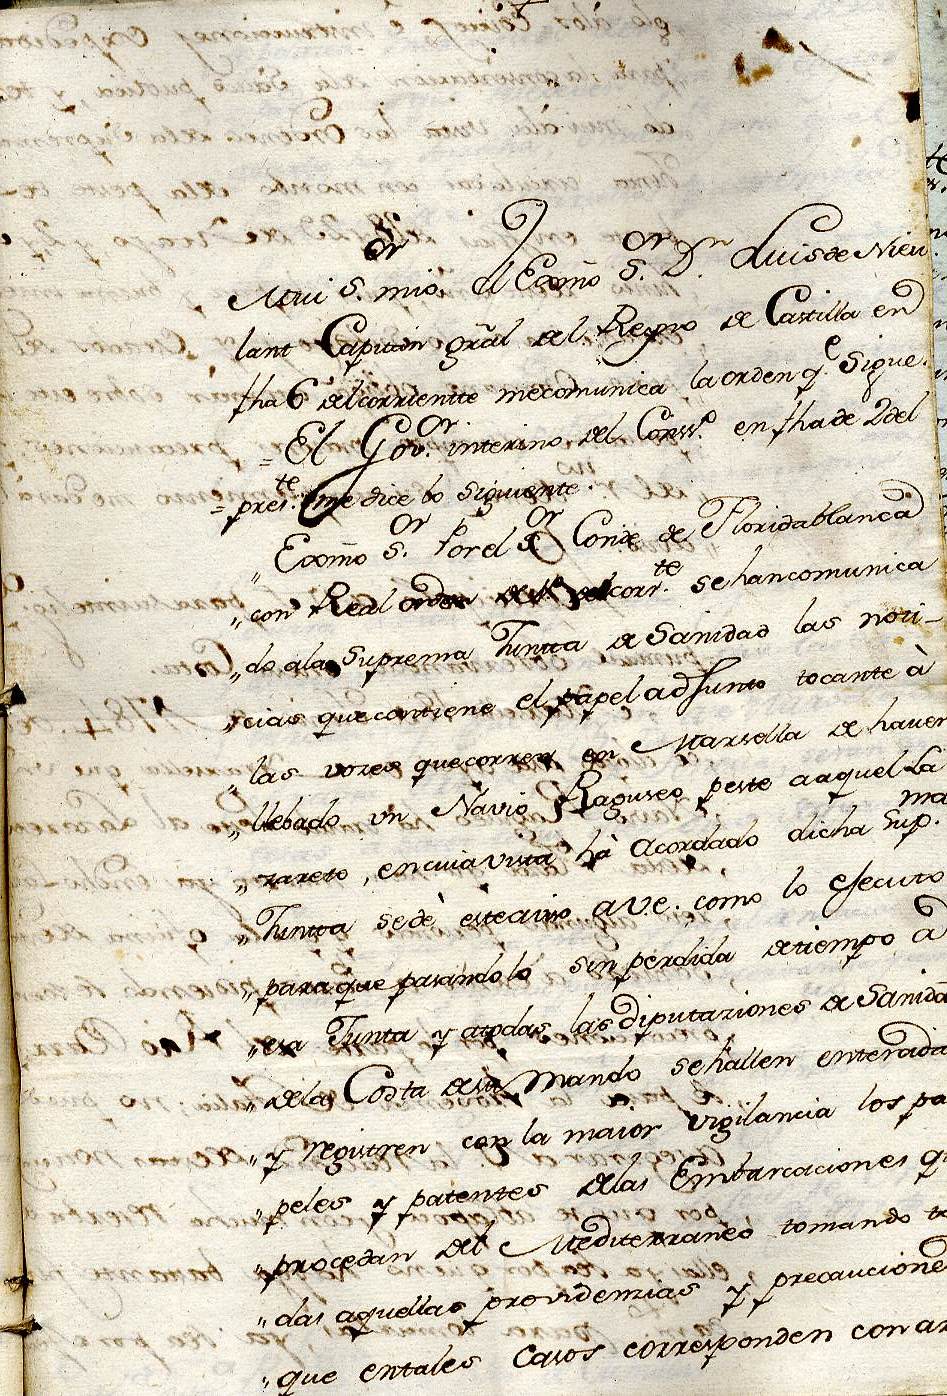 Mui S.or mio. El Exmo S.or D.n Luis de Nieu
lant Capitan gral del Reyno de Castilla en
fha 6 del corriente me comunica la orden q.e sigue.
= El Gov.or interino del Cons.o en fha de 2 del
= pres.te me dice lo siguiente.
„ Exmo S.or Por el S.or Conde de Floridablanca
„ con Real orden de del corr.te se han comunica
„ do ala Suprema Junta de Sanidad las noti-
„ cias que contiene el papel adjunto tocante à
„ las vozes que corren en Marsella de haver
„ llebado un Navio Raguseo peste a aquel La
„ zareto, en cuia vista hà acordado dicha Sup.ma
„ Junta se dè este aviso a V.E. como lo ejecuto
„ para que pasandolo sin perdida de tiempo à
„ esa Junta y a todas las diputaziones de Sanida
„ de la Costa de su Mando se hallen enterada
„ y registren con la maior vigilancia los pa
„ peles y patentes de las Embarcaciones q
„ procedan del Mediterraneo tomando to
„ das aquellas providenzias y precaucione
„ que en tales Casos corresponden con ar